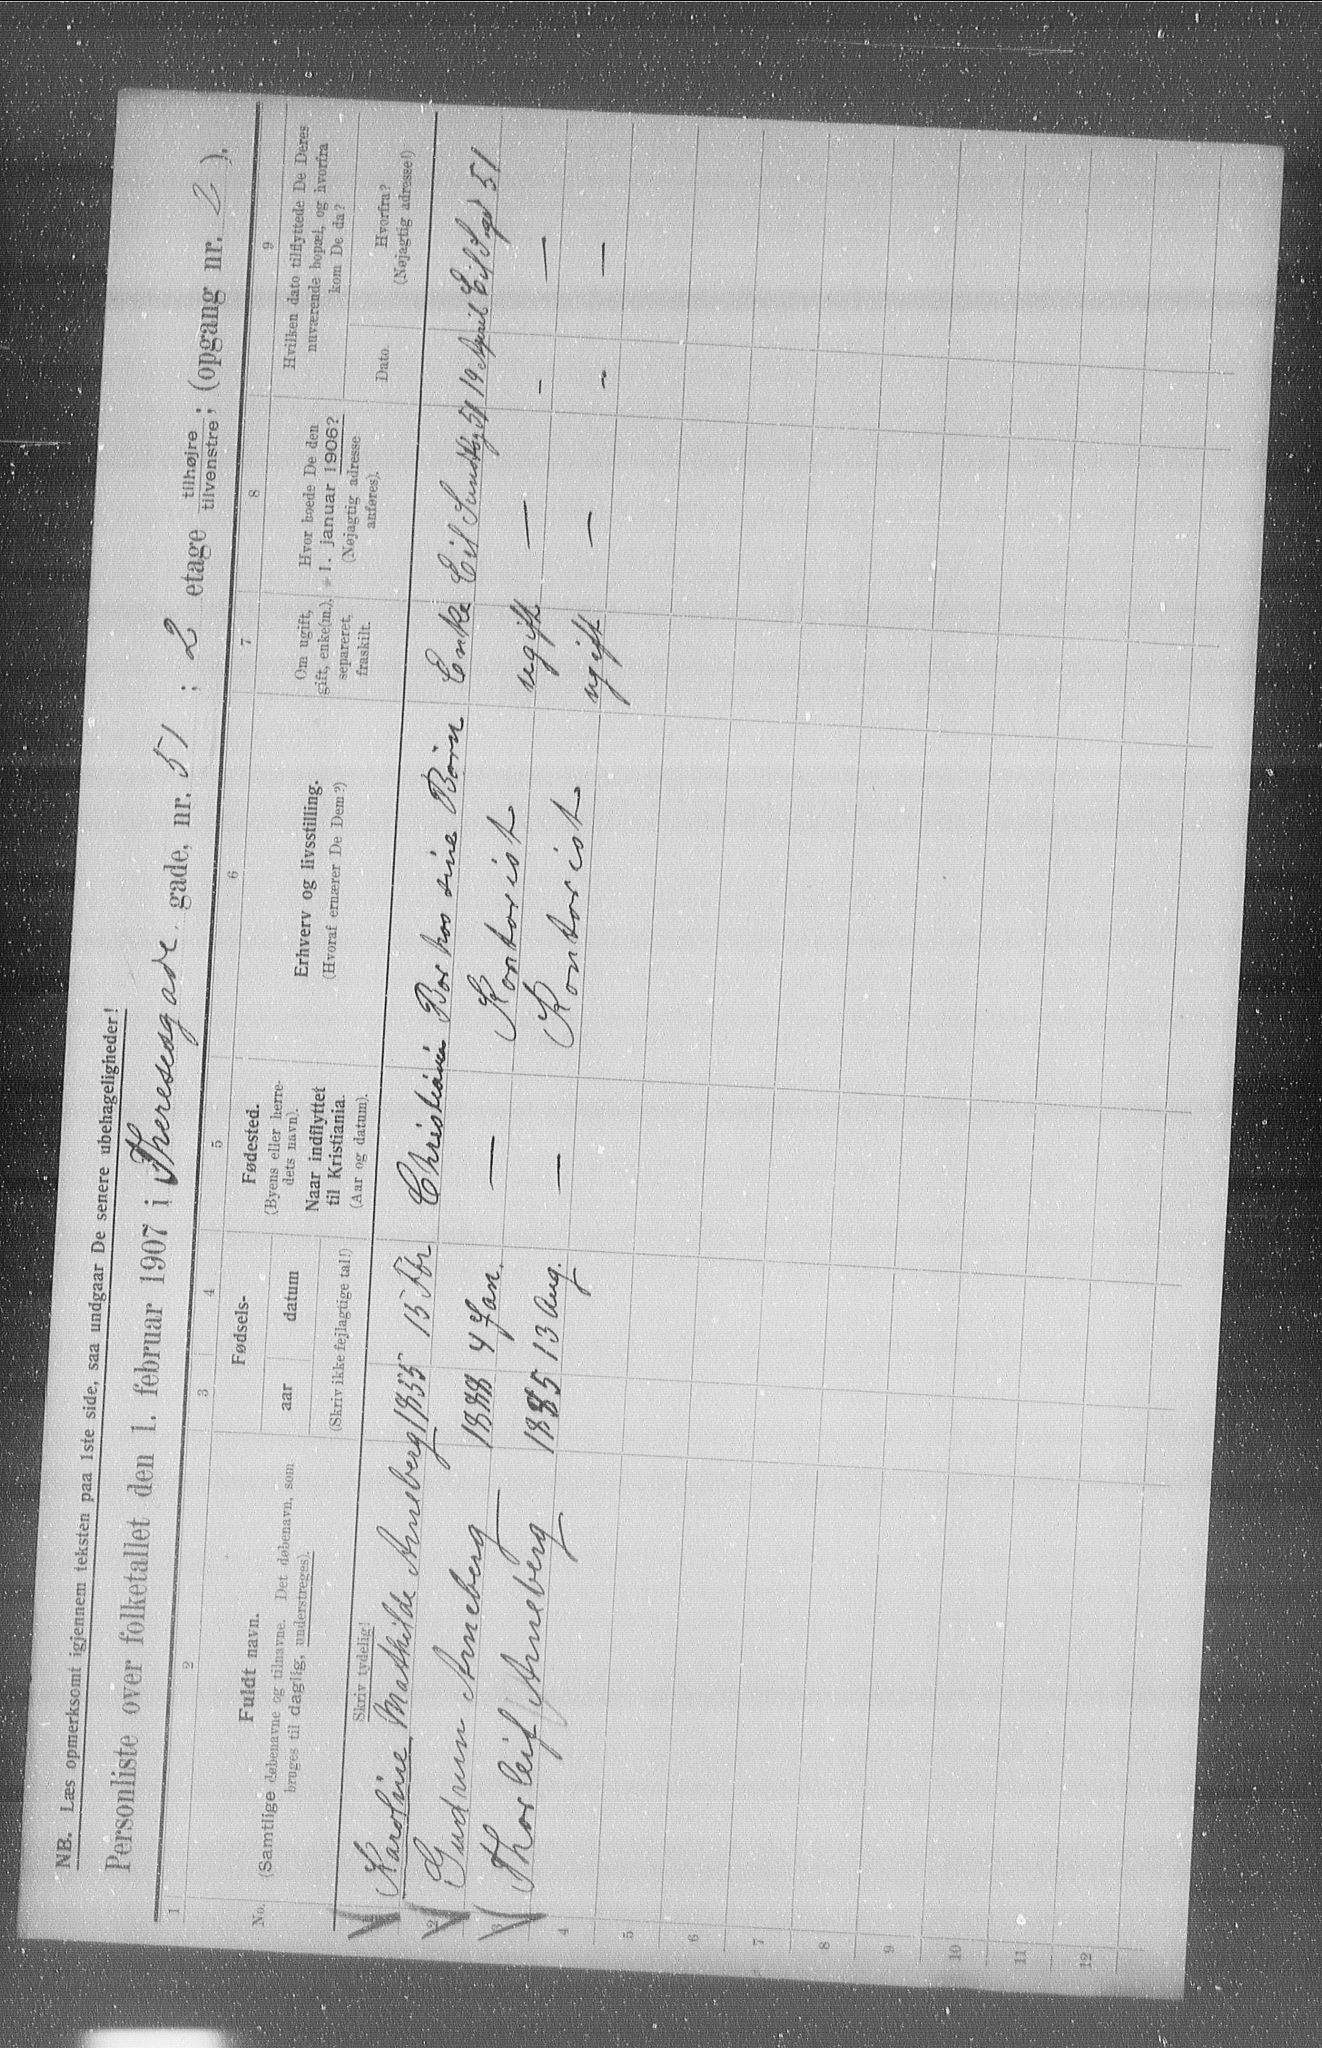 NB. Læs opmerksomt igjennem teksten paa 1ste side, saa undgaar De senere ubehageligheder!
Personliste over folketallet den 1. februar 1907 i Theresesgade gade, nr. 51 ; 2 etage tilhøjre / tilvenstre; (opgang nr. 2 ).
1 2 3 4 5 6 7 8 9
No.
Fuldt navn.
(Samtlige døbenavne og tilnavne. Det døbenavn, som
bruges til daglig, understreges).
Skriv tydelig!
Fødsels-
aar datum
(Skriv ikke fejlagtige tal!)
Fødested.
(Byens eller herre-
dets navn).
Naar indflyttet
til Kristiania.
(Aar og datum).
Erhverv og livsstilling.
(Hvoraf ernærer De Dem?)
Om ugift,
gift, enke(m.),
separeret,
fraskilt.
Hvor boede De den
1. januar 1906?
(Nøjagtig adresse
anføres).
Hvilken dato tilflyttede De Deres
nuværende bopæl, og hvorfra
kom De da?
Dato.
Hvorfra?
(Nøjagtig adresse!)
Karoline Mathilde Arneberg 1855 15 Christiania Bor hos sine Børn Enke Eil Sundtsg 51 19 April Eil 51
2 Gudrun Arneberg 1888 4 Jan. — Kontorist ugift — - —
3 Thorleif Arneberg 1885 13 Aug. — Kontorist ugift — - —
4
5
6
7
8
9
10
11
12